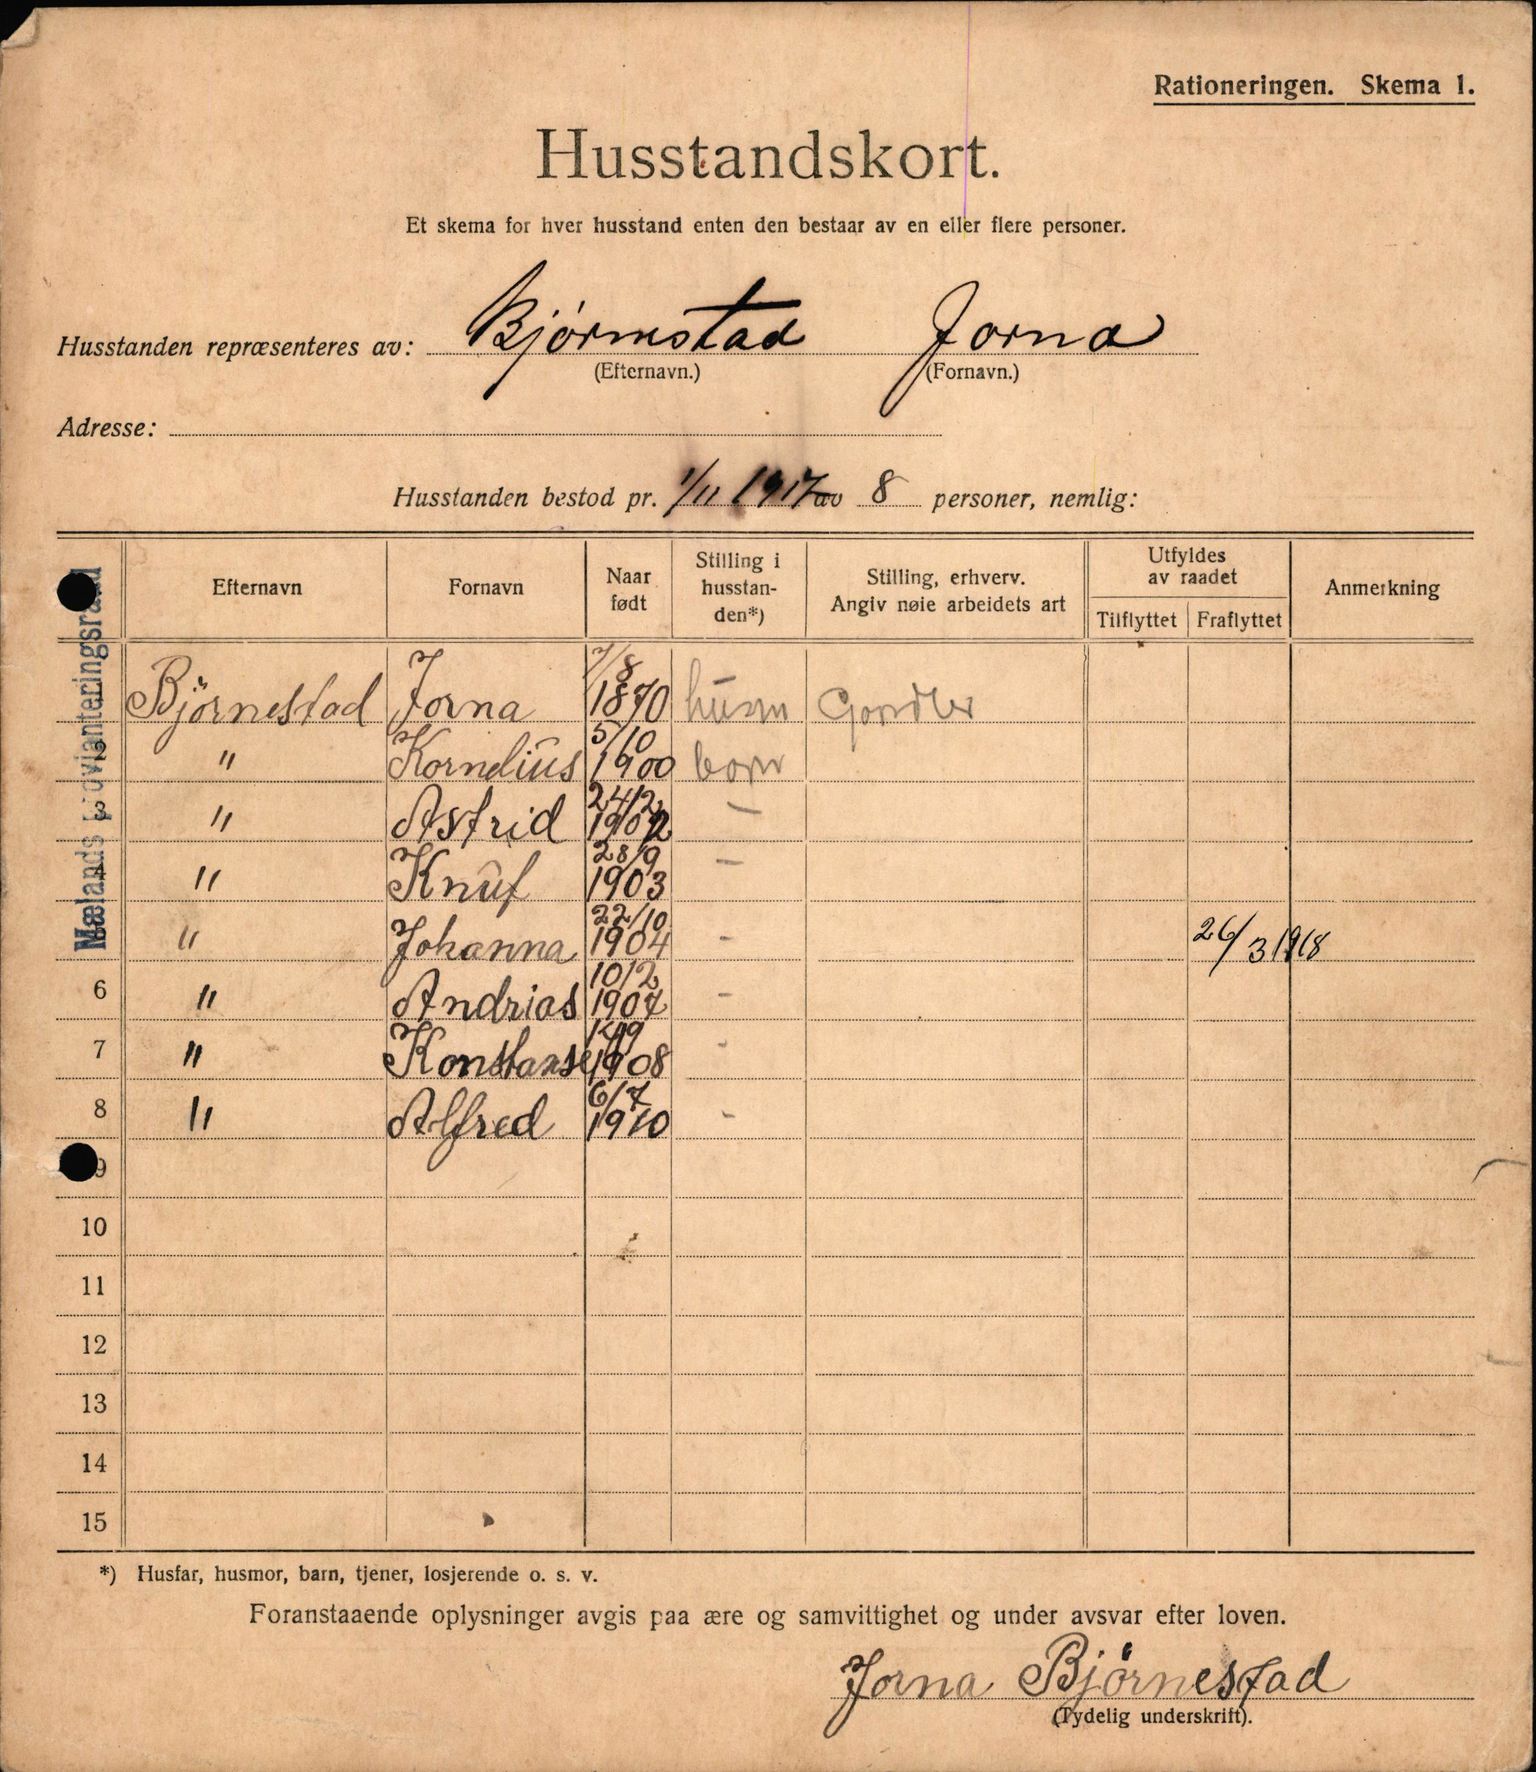 Rationeringen. Skema 1.
Husstandskort.
Et skema for hver husstand enten den bestaar av en eller flere personer.
Husstanden repræsenteres av: Bjørnestad Jorna
(Efternavn.) (Fornavn.)
Adresse:
Husstanden bestod pr. 1/11 1917 av 8 personer, nemlig:
Mælands provianteringsraad
Efternavn Fornavn Naar født Stilling i husstanden*) Stilling, erhverv. Angiv nøie arbeidets art Utfyldes av raadet Tilflyttet Fraflyttet Anmerkning
Bjørnestad Jorna 7/8 1870 husm
" Kornelius 5/10 1900 born
" Astrid 24/2 1902 –
" Knut 28/9 1903 –
" Johanna 22/10 1904 - 26/3 1918
6 " Andrias 10/2 1907 -
7 " Konstanse 1908 -
8 " Alfred 6/7 1910 -
9
10
11
12
13
14
15
*) Husfar, husmor, barn, tjener, losjerende o. s. v.
Foranstaaende oplysninger avgis paa ære og samvittighet og under avsvar efter loven.
Jorna Bjørnestad
(Tydelig underskrift).